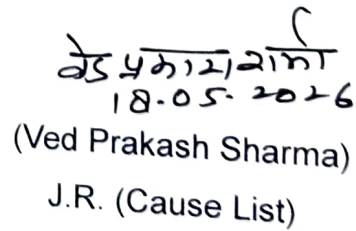 वेद प्रकाश शर्मा
18.05.2026
(Ved Prakash Sharma)
J.R. (Cause List)